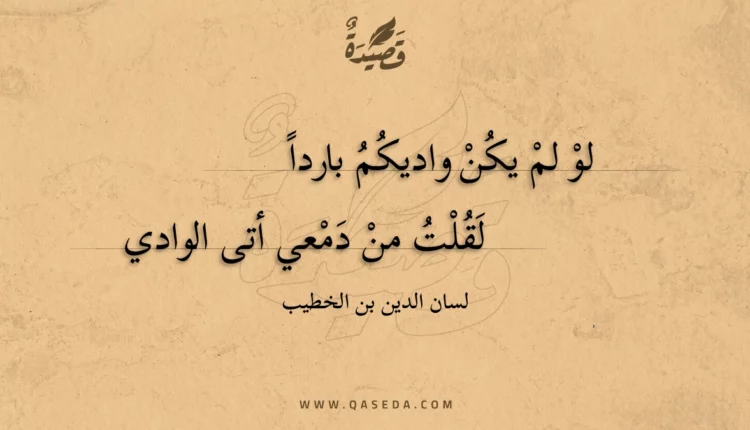 قَصِيدَةٌ
لوْ لمْ يكُنْ واديكُمُ بارداً
لَقُلْتُ منْ دَمْعي أتى الوادي
لسان الدين بن الخطيب
WWW.QASEDA.COM